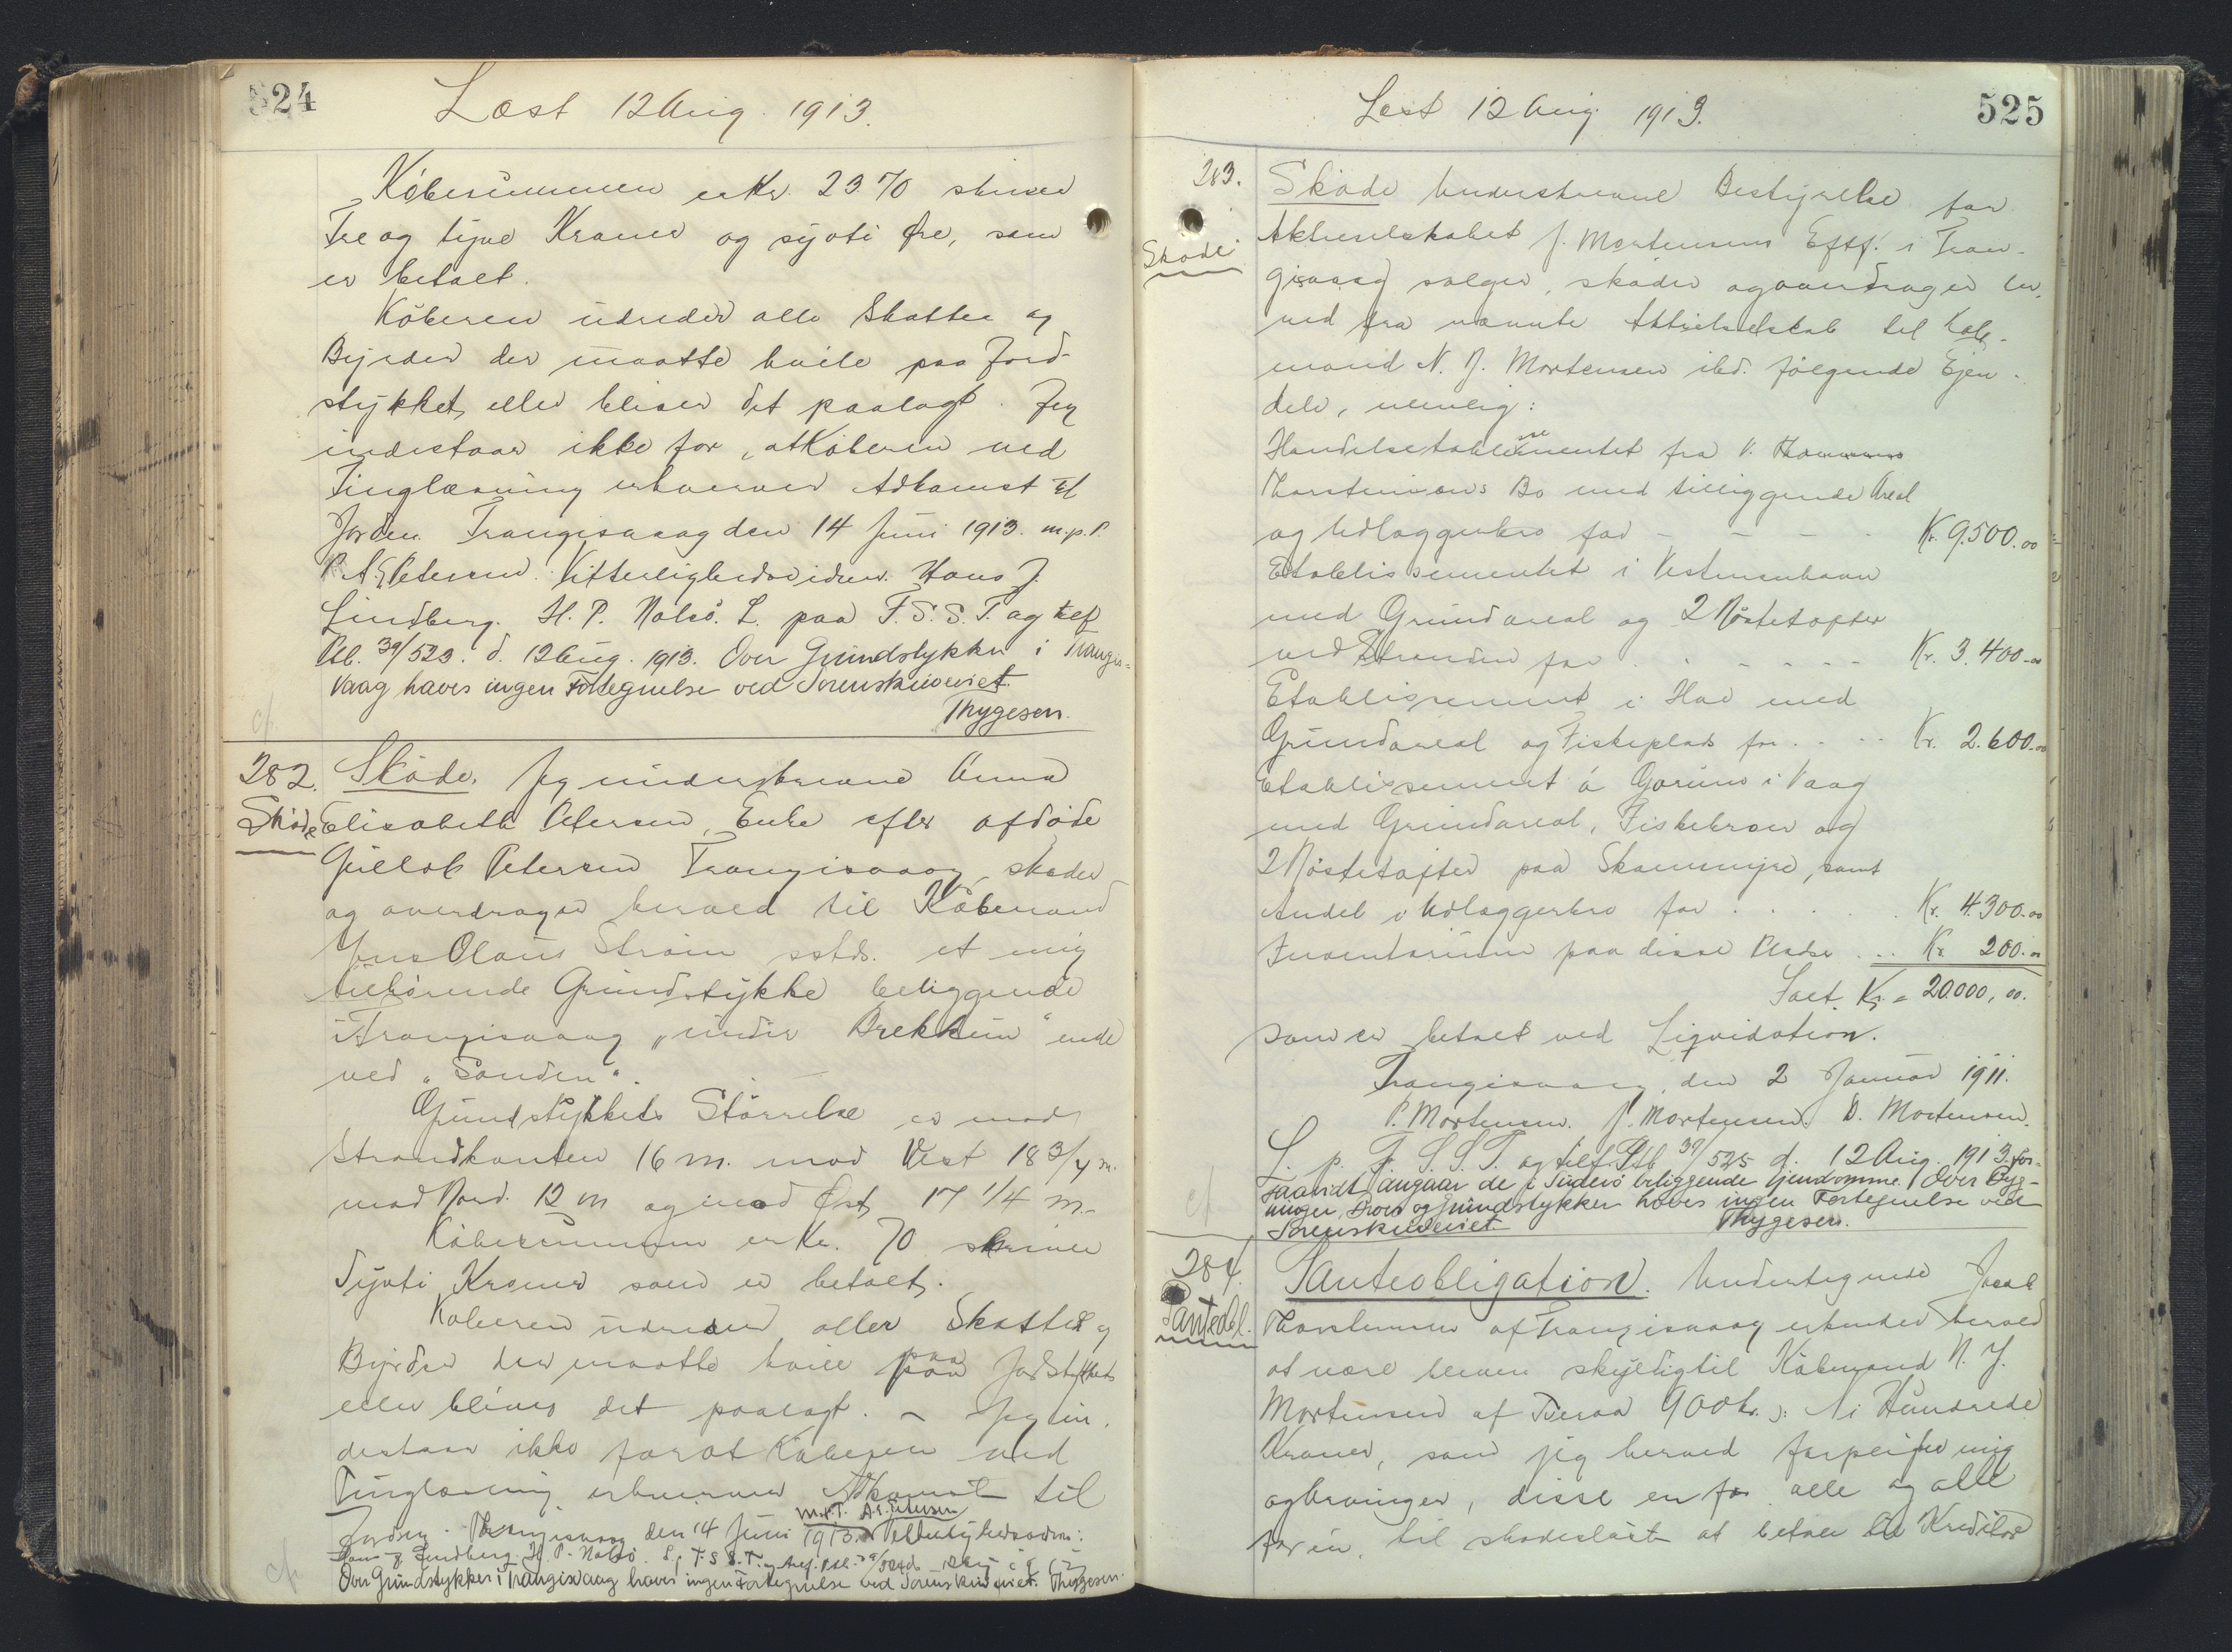 524
Læst 12 Aug. 1913.
Købesummen er Kr. 23 70 skriver
Tre og tyve Kroner og syvti Øre, som
er betalt.
Køberen udreder alle Skatter og
Byrder der maatte hvile paa Jord-
stykket, eller bliver det paalagt. Jeg
indestaar ikke for, at Køberen ved
Tinglæsning erhverver Adkomst til
Jorden. Trangisvaag den 14 Juni 1913. m.p.P.
A. E. Petersen. Vitterlighedsvidner. Hans J.
Lindberg. H. P. Nolsø. L. paa F. S. S. T. og tilf
Ptb. 39/523. d. 12 Aug. 1913. Over Grundstykker i Trangis-
vaag haves ingen Fortegnelse ved Sorenskriveriet.
Thygesen.
282. Skøde. Jeg underskrevne Anna
Skøde Elisabeth Petersen, Enke efter afdøde
Guttob Petersen Trangisvaag, skøder
og overdrager herved til Købmand
Jens Olaus Strøm sstds. et mig
tilhørende Grundstykke beliggende
i Trangisvaag „undir Brekkum" ende
ved „Sanden".
Grundstykkets Størrelse er mod
Strandkanten 16 m. mod Vest 18 3/4 m.
mod Nord. 12 m og mod Øst 17 1/4 m.
Købesummen er Kr. 70 skriver
Syvti Kroner som er betalt.
Køberen udreder aller Skatter og
Byrder der maatte hvile paa Jordstykket
eller bliver det paalagt. - Jeg in-
destaar ikke for at Køberen ved
Tinglæsning erhverver Adkomst til
m.p.P. A. E. Petersen
Jorden. Trangisvaag den 14 Juni 1913. Vitterlighedsvidner:
Hans J. Lindberg. H. P. Nolsø. L. p. F. S. S. T. og tilf. Ptb. 39/524 d. 12 Aug 1913
Over Grundstykker i Trangisvaag haves ingen Fortegnelse ved Sorenskriveriet. Thygesen.
525
Læst 12 Aug 1913.
283. Skøde Underskrevne Bestyrelse for
Skøde Aktieselskabet J. Mortensens Eftf. i Tran-
gisvaag sælger, skøder og overdrager her-
ved fra nævnte Aktieselskab til Køb-
mand N. J. Mortensen ibd. følgende Ejen-
dele, nemlig:
Handelsetablissementet fra V.
Thorsteinsons Bo med tilliggende Areal
og Udlæggerbro for - - - Kr. 9.500.00
Etablissementet i Vestmanhavn
med Grundareal og 2 Nøstetofter
ved Stranden for - - - Kr. 3.400.00
Etablissement i Hov med
Grundareal og Fiskeplads for - - - Kr. 2.600.00
Etablissement á Garum i Vaag
med Grundareal, Fiskekroer og
2 Nøstetofter paa Skammyre, samt
Andel i Udlæggerbro for . . . Kr. 4.300.00
Inventarium paa disse Pladser . . . Kr. 200.00
Ialt Kr. = 20.000,00.
som er betalt ved Liqvidation.
Trangisvaag, den 2 Januar 1911.
P. Mortensen. J. Mortensen. D. Mortensen.
L. p. F. S. S. T. og tilf. Ptb 39/525 d. 12 Aug. 1913. for-
saavidt angaar de i Suderø beliggende Ejendomme. Over Byg-
ninger, Broer og Grundstykker haves ingen Fortegnelse ved
Sorenskriveriet. Thygesen.
284. Panteobligation. Undertegnede Jacob
Panteobl. Thorsteinson af Trangisvaag erkender herved
at være bleven skyldig til Købmand N. J.
Mortensen af Tveraa 900 Kr. ɔ: Ni Hundrede
Kroner, som jeg herved forpligter mig
og Arvinger, disse en for alle og alle
for én, til skadesløst at betale til Kreditor